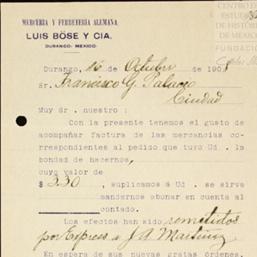 MERCERIA Y FERRETERIA ALEMANA
LUIS BÖSE Y CIA.
DURANGO, MEXICO.
CENTRO DE
ESTUDIOS
DE HISTORIA
DE MEXICO
FUNDACIÓN
Durango, 16 de Octubre 190
Sr. Francisco G. Palacio
Ciudad
Muy Sr. nuestro:
Con la presente tenemos el gusto de
acompañar factura de las mercancias co-
rrespondientes al pedido que tuvo Ud. la
bondad de hacernos,
cuyo valor de
$ 230 , suplicamos á Ud. se sirva
mandarnos abonar en cuenta al
contado.
Los efectos han sido remitidos
por Express a J. A. Martinez
En espera de sus nuevas gratas órdenes,